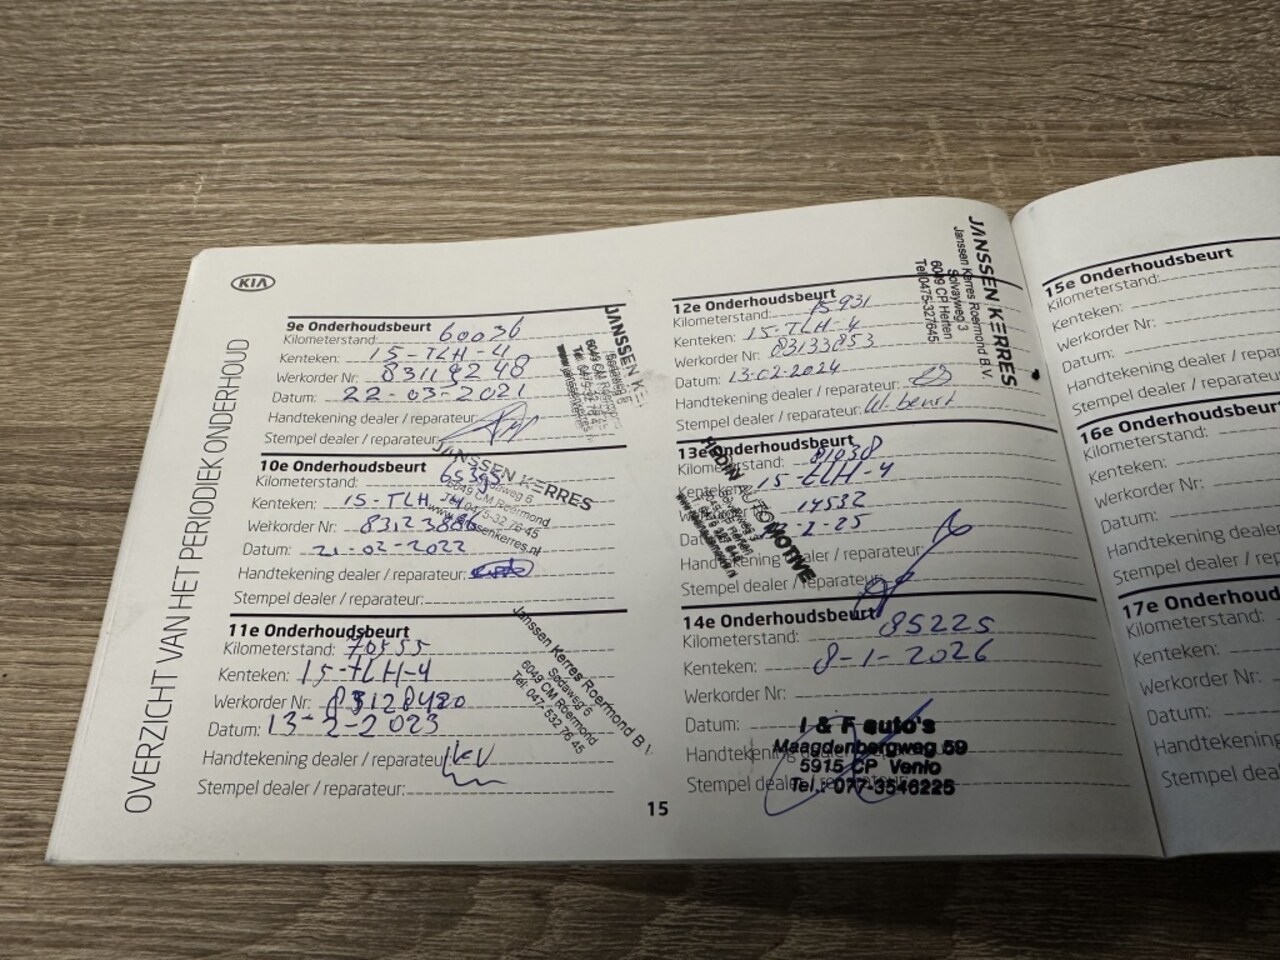 KIA
OVERZICHT VAN HET PERIODIEK ONDERHOUD
9e Onderhoudsbeurt
Kilometerstand: 60036
Kenteken: 15-TLH-4
Werkorder Nr:
Datum: 22-03-2021
Handtekening dealer / reparateur:
Stempel dealer / reparateur:
JANSSEN KE
10e Onderhoudsbeurt
Kilometerstand:
Kenteken: 15-TLH
Werkorder Nr:
Datum: 21-02-2022
Handtekening dealer / reparateur:
Stempel dealer / reparateur:
JANSSEN KERRES
Sødaweg 6
6049 CM Roermond
0475-32 76 45
www.janssenkerres.nl
11e Onderhoudsbeurt
Kilometerstand: 70555
Kenteken: 15-TLH-4
Werkorder Nr: 83128420
Datum: 13-2-2023
Handtekening dealer / reparateur:
Stempel dealer / reparateur:
Janssen Kerres Roermond B.V.
Sødaweg 6
6049 CM Roermond
Tel. 047- 532 76 45
12e Onderhoudsbeurt
Kilometerstand: 15931
Kenteken: 15-TLH-4
Werkorder Nr: 83133853
Datum: 13-02-2024
Handtekening dealer / reparateur:
Stempel dealer / reparateur: W. beurt
JANSSEN KERRES
Janssen Kerres Roermond B.V.
Solvayweg 3
6049 CP Herten
Tel.0475-327645
13e Onderhoudsbeurt
Kilometerstand: 81038
Kenteken: 15-TLH-4
14532
2-25
Handtekening dealer / reparateur:
Stempel dealer / reparateur:
HEDIN AUTOMOTIVE
14e Onderhoudsbeurt
Kilometerstand: 85225
Kenteken: 8-1-2026
Werkorder Nr:
Datum:
Handtekening
Stempel dealer / reparateur:
I & F auto's
Maagdenbergweg 59
5915 CP Venlo
Tel.: 077-3546225
15
15e Onderhoudsbeurt
Kilometerstand:
Kenteken:
Werkorder Nr:
Datum:
Handtekening dealer / repar
Stempel dealer / reparateur
16e Onderhoudsbeurt
Kilometerstand:
Kenteken:
Werkorder Nr:
Datum:
Handtekening dealer
Stempel dealer / repa
17e Onderhoud
Kilometerstand:
Kenteken:
Werkorder Nr:
Datum:
Handtekening
Stempel dea